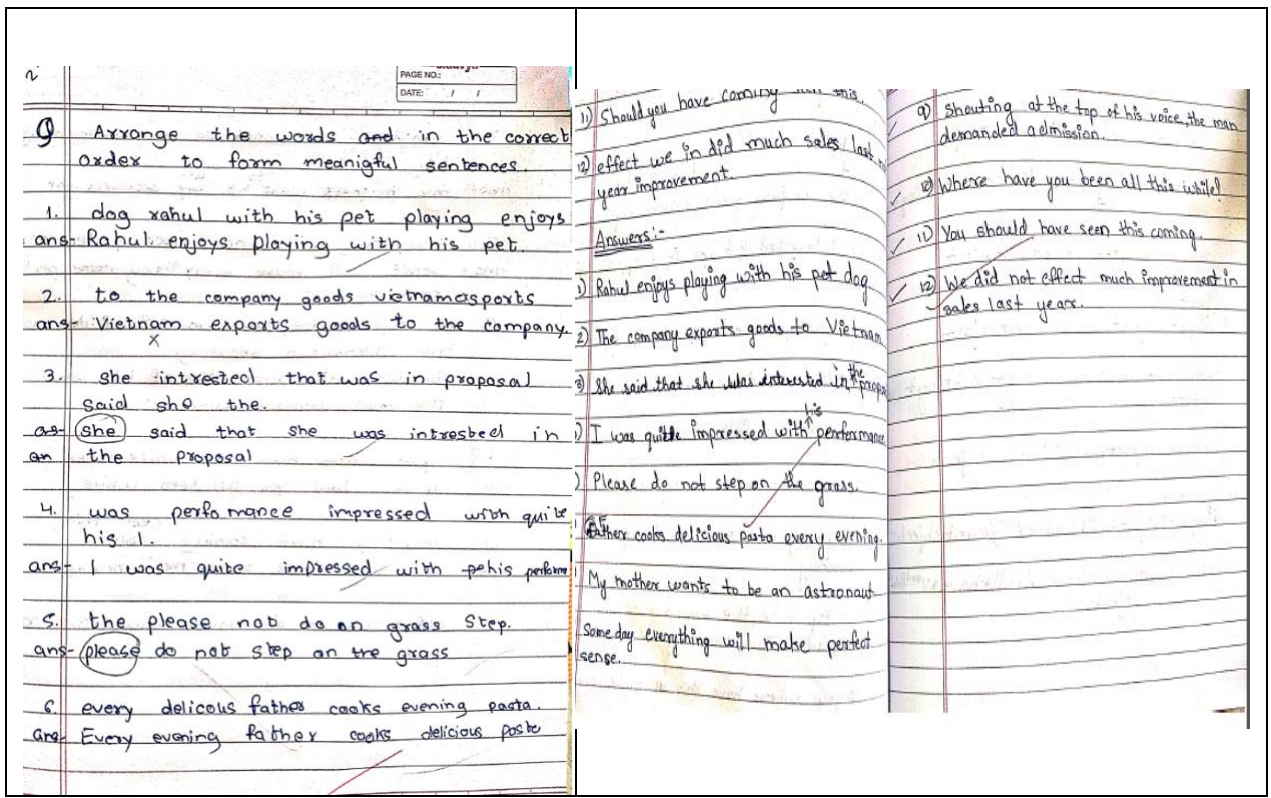 PAGE NO.:
DATE: / /
Q Arrange the words and in the correct
order to form meanigful sentences.
1. dog rahul with his pet playing enjoys
ans- Rahul enjoys playing with his pet.
2. to the company goods vietnamasports
ans- Vietnam exports goods to the company
x
3. she intrested that was in proposal
said sho the.
as- she said that she was intrested in
an the proposal
4. was perfo mance impressed with quite
his I.
ans- I was quite impressed with pehis perform
5. the please not do on grass Step.
ans- please do not step on the grass
6. every delicous father cooks evening pasta.
ans- Every evening father cooks delicious paste
11) Should you have coming this.
12) effect we in did much sales last
year improvement.
Answers:-
1) Rahul enjoys playing with his pet dog
2) The company exports goods to Vietnam
3) She said that she was interested in the propos
) I was quite impressed with his performance.
) Please do not step on the grass.
Father cooks delicious pasta every evening.
My mother wants to be an astronaut
Someday everything will make perfect
sense.
9) Shouting at the top of his voice, the man
demanded admission.
10) Where have you been all this while!
11) You should have seen this coming.
12) We did not effect much improvement in
sales last year.